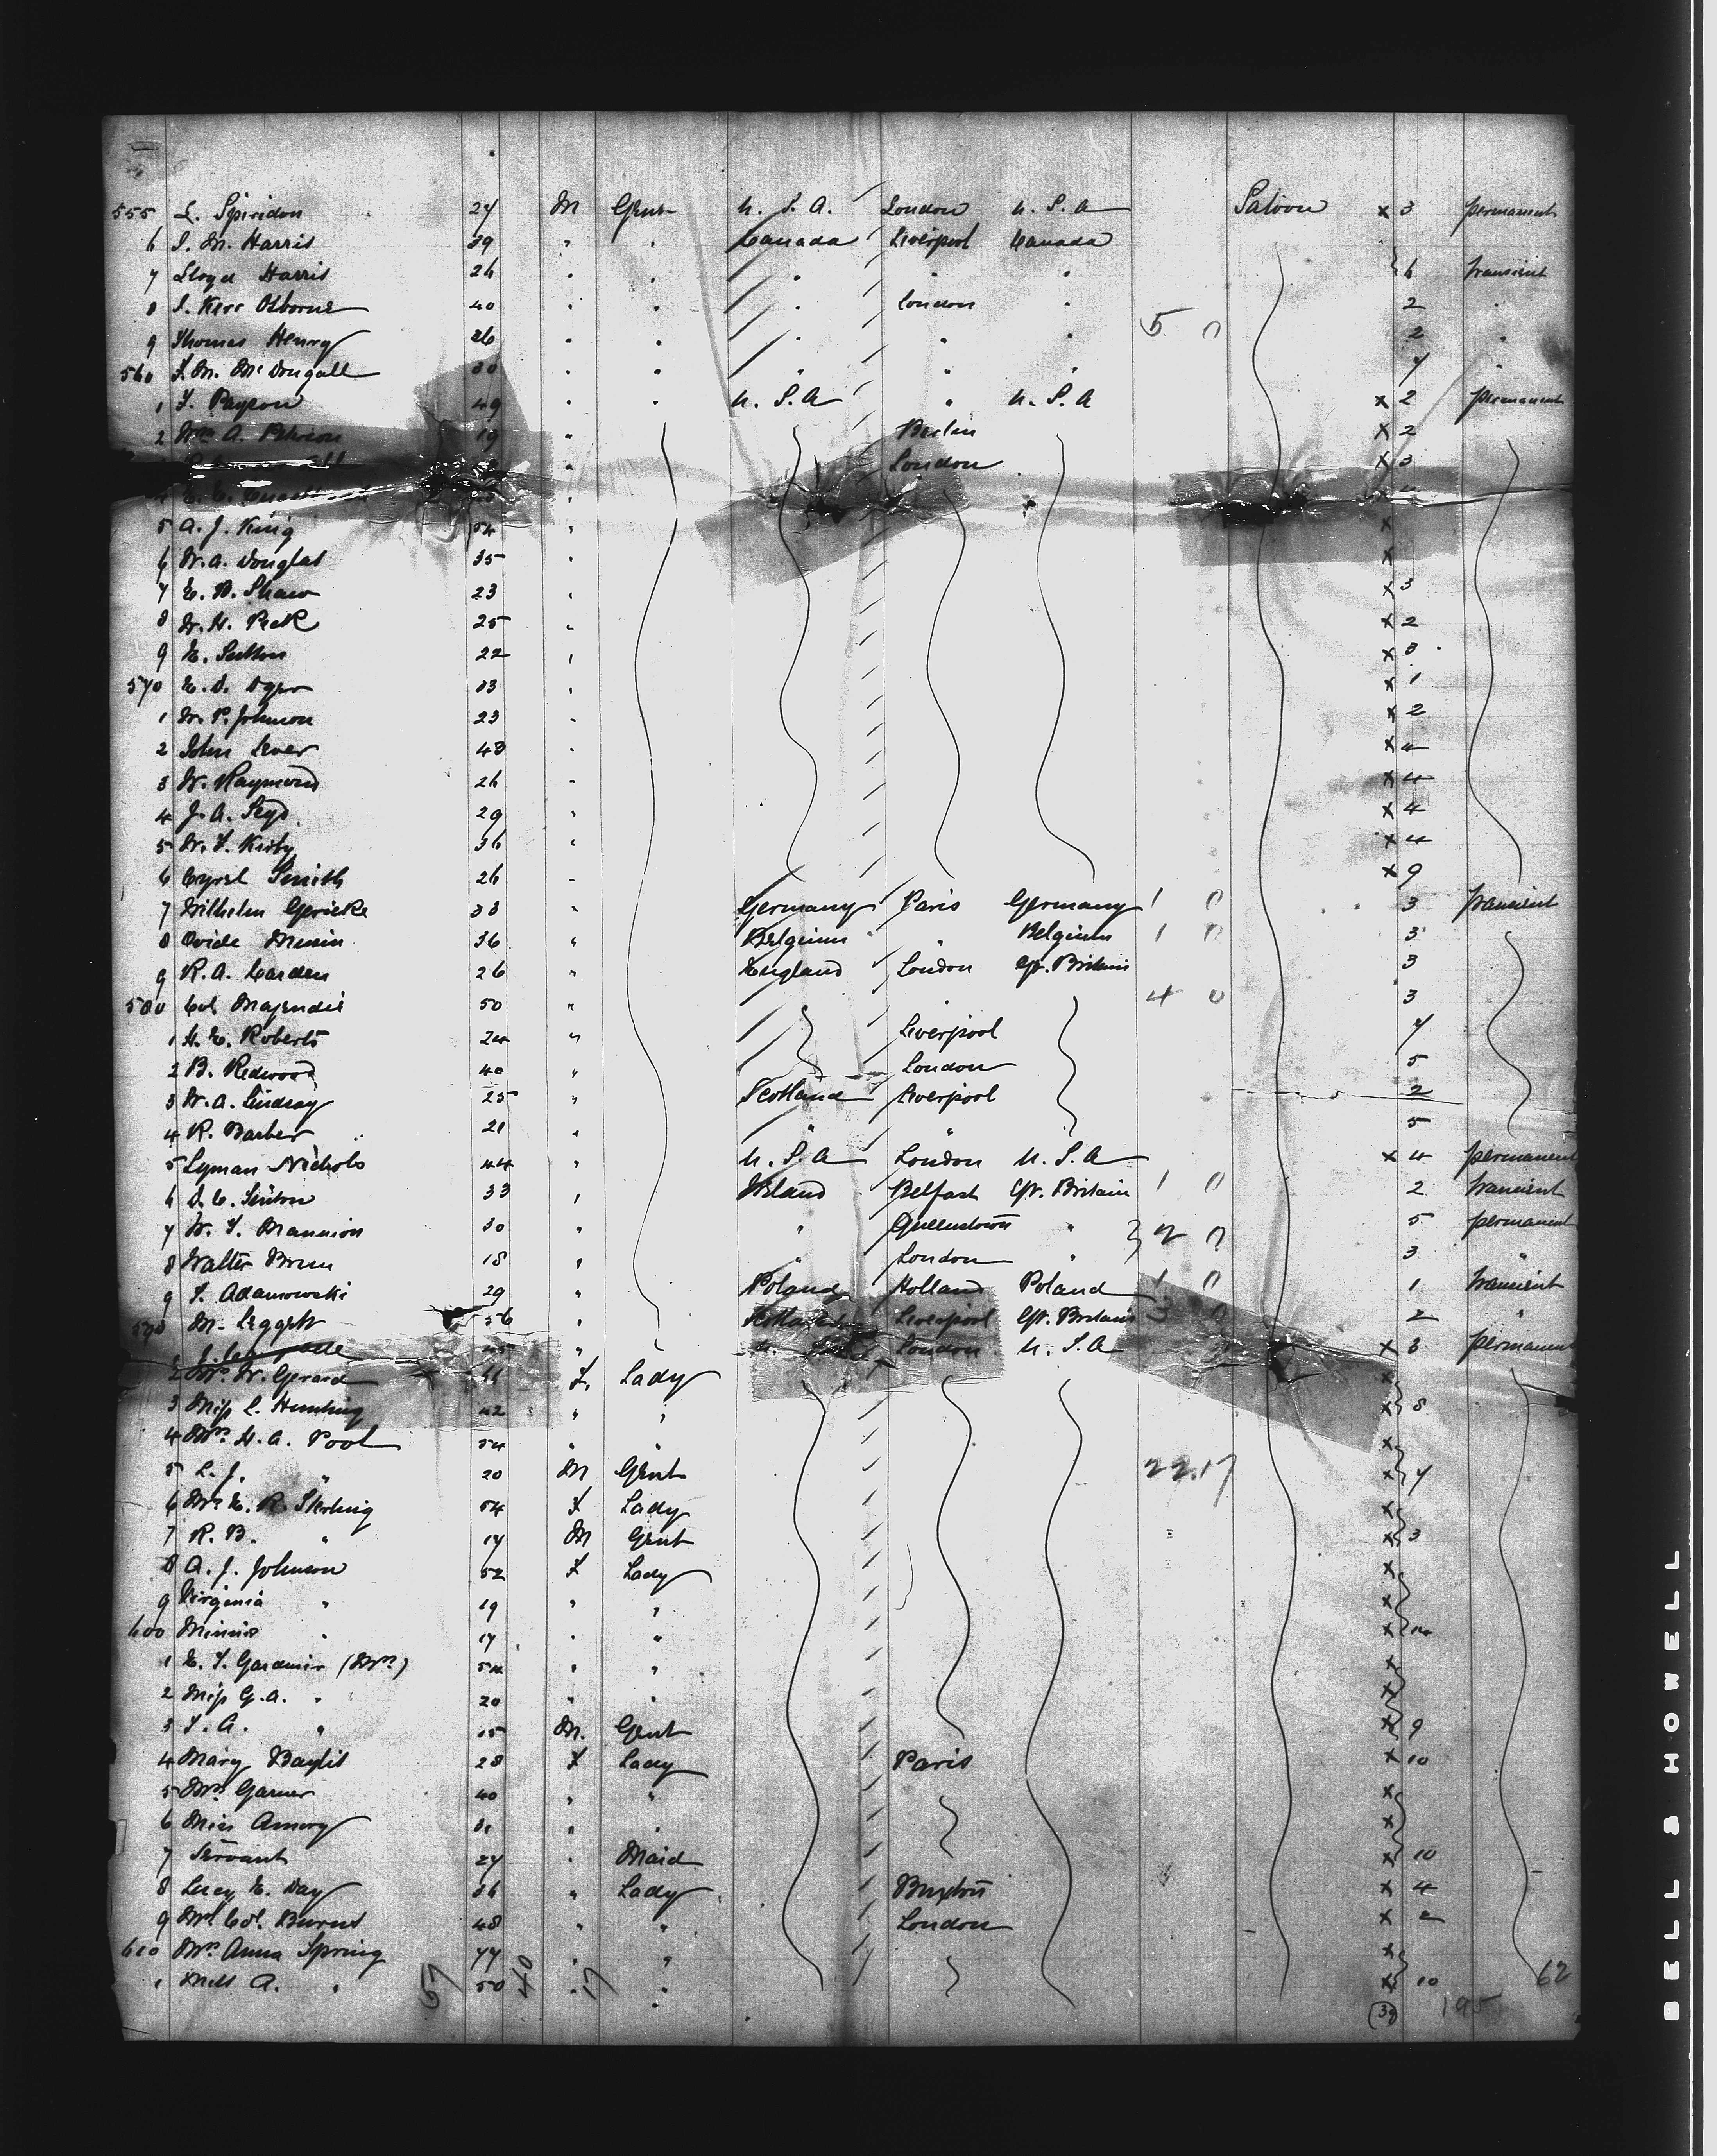 555 L. Spiridon 27 M Gent U.S.A. London U.S.A Saloon x 3 permanent
6 J. M. Harris 39 " " Canada Liverpool Canada
7 Lloyd Harris 26 " " " " " 6 transient
8 J. Kerr Osborne 40 " " " London " 2 "
9 Thomas Henry 26 " " " " " 5 0 2 "
560 " " " " " 7 "
1 49 " " U.S.A " U.S.A x 2 permanent
2 Wm A. 19 " Berlin x 2
London x 3
5 A. J. King 54 " x
6 W. A. Douglas 35 " x
7 E. D. Shaw 23 " x 3
8 W. H. Peck 25 " x 2
9 E. Sutton 22 " x 3
570 E. D. 33 " x 1
1 W. P. Johnson 23 " x 2
2 John Lever 43 " x 4
3 W. Raymond 26 " x 4
4 J. A. 29 " x 4
5 W. F. Kirby 36 " x 4
6 Cyril Smith 26 " x 9
7 Wilhelm Gericke 38 " Germany Paris Germany 1 0 3 transient
8 Ovide Musin 36 " Belgium " Belgium 1 0 3
9 R. A. Carden 26 " England London Gt. Britain 3
580 Col Majendie 50 " 4 0 3
1 H. E. Roberts 24 " Liverpool 7
2 B. Redwood 40 " London 5
3 W. A. Lindsay 25 " Scotland Liverpool 2
4 R. Barber 21 " " " 5
5 Lyman Nichols 44 " U.S.A London U.S.A x 4 permanent
6 D. C. Sinton 33 " Ireland Belfast Gt. Britain 1 0 2 transient
7 W. F. Mannion 30 " " Queenstown " 2 0 5 permanent
8 Walter Brun 18 " " London " 3 "
9 T. Adamowski 29 " Poland Holland Poland 1 0 1 transient
590 M. Leggett 56 " Scotland Liverpool Gt. Britain 3 0 2 "
" U.S.A London U.S.A x 3 permanent
2 Mrs W. Gerard F. Lady x
3 Miss L. Hunting 42 " " x 8
4 Mrs H. A. Pool 54 " " x
5 L. J. " 20 M Gent 22.17 x 7
6 Mrs E. R. Sterling 54 F Lady x
7 R. B. " 17 M Gent x 3
8 A. J. Johnson 52 F Lady x
9 Virginia " 19 " " x
600 Minnie " 17 " " x 14
1 E. F. Gardiner (Mrs) 54 " " x
2 Miss G. A. " 20 " " x
3 F. A. " 15 M. Gent x 9
4 Mary Baylis 28 F Lady Paris x 10
5 Mrs Garner 40 " " x
6 Miss Amory " " x
7 Servant 27 " Maid x 10
8 Lucy E. Day 36 " Lady Buxton x 4
9 Mrs Col. Burns 48 " " London x 2
610 Mrs Anna Spring 77 " " x
1 Miss A. " 50 " " x 10
57 40 17 39 195 62
BELL & HOWELL